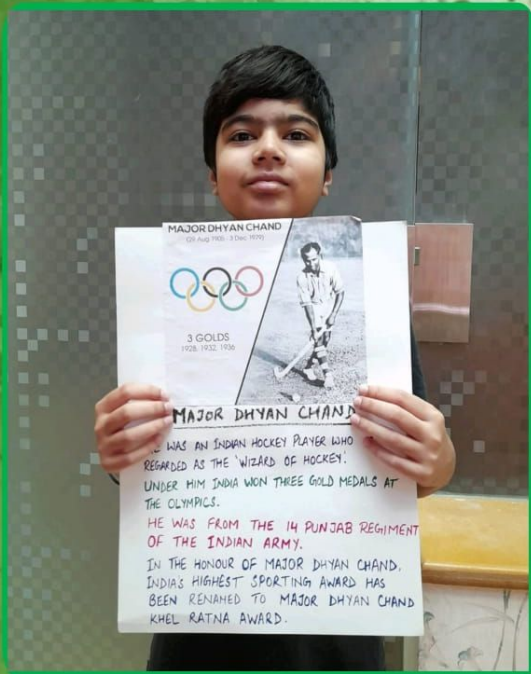 MAJOR DHYAN CHAND
(29 Aug 1905 - 3 Dec, 1979)
3 GOLDS
1928, 1932, 1936
MAJOR DHYAN CHAND
WAS AN INDIAN HOCKEY PLAYER WHO
REGARDED AS THE 'WIZARD OF HOCKEY'.
UNDER HIM INDIA WON THREE GOLD MEDALS AT
THE OLYMPICS.
HE WAS FROM THE 14 PUNJAB REGIMENT
OF THE INDIAN ARMY.
IN THE HONOUR OF MAJOR DHYAN CHAND,
INDIA'S HIGHEST SPORTING AWARD HAS
BEEN RENAMED TO MAJOR DHYAN CHAND
KHEL RATNA AWARD.